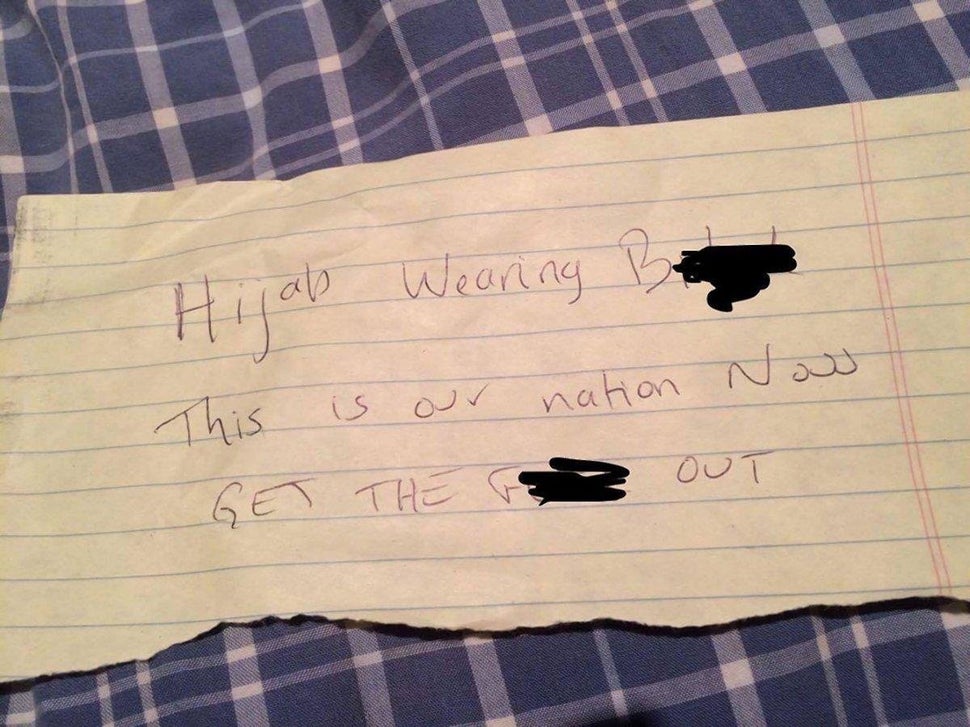 Hijab Wearing B
This is our nation Now
GET THE G OUT